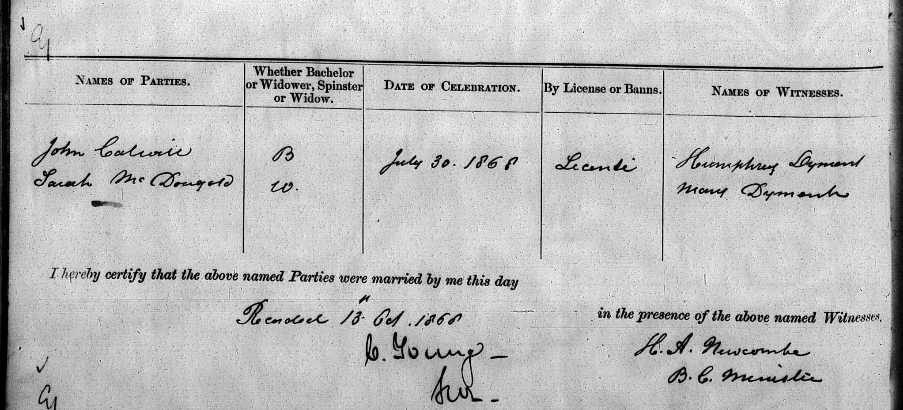 NAMES OF PARTIES.
Whether Bachelor or Widower, Spinster or Widow.
DATE OF CELEBRATION.
By License or Banns.
NAMES OF WITNESSES.
John B July 30. 1868 Humphrey Dyment
Sarah McDougald W. Mary Dyment
I hereby certify that the above named Parties were married by me this day
in the presence of the above named Witnesses.
Recorded 13th Oct. 1868
H. A. Newcombe
C. Young
B. C. Minister